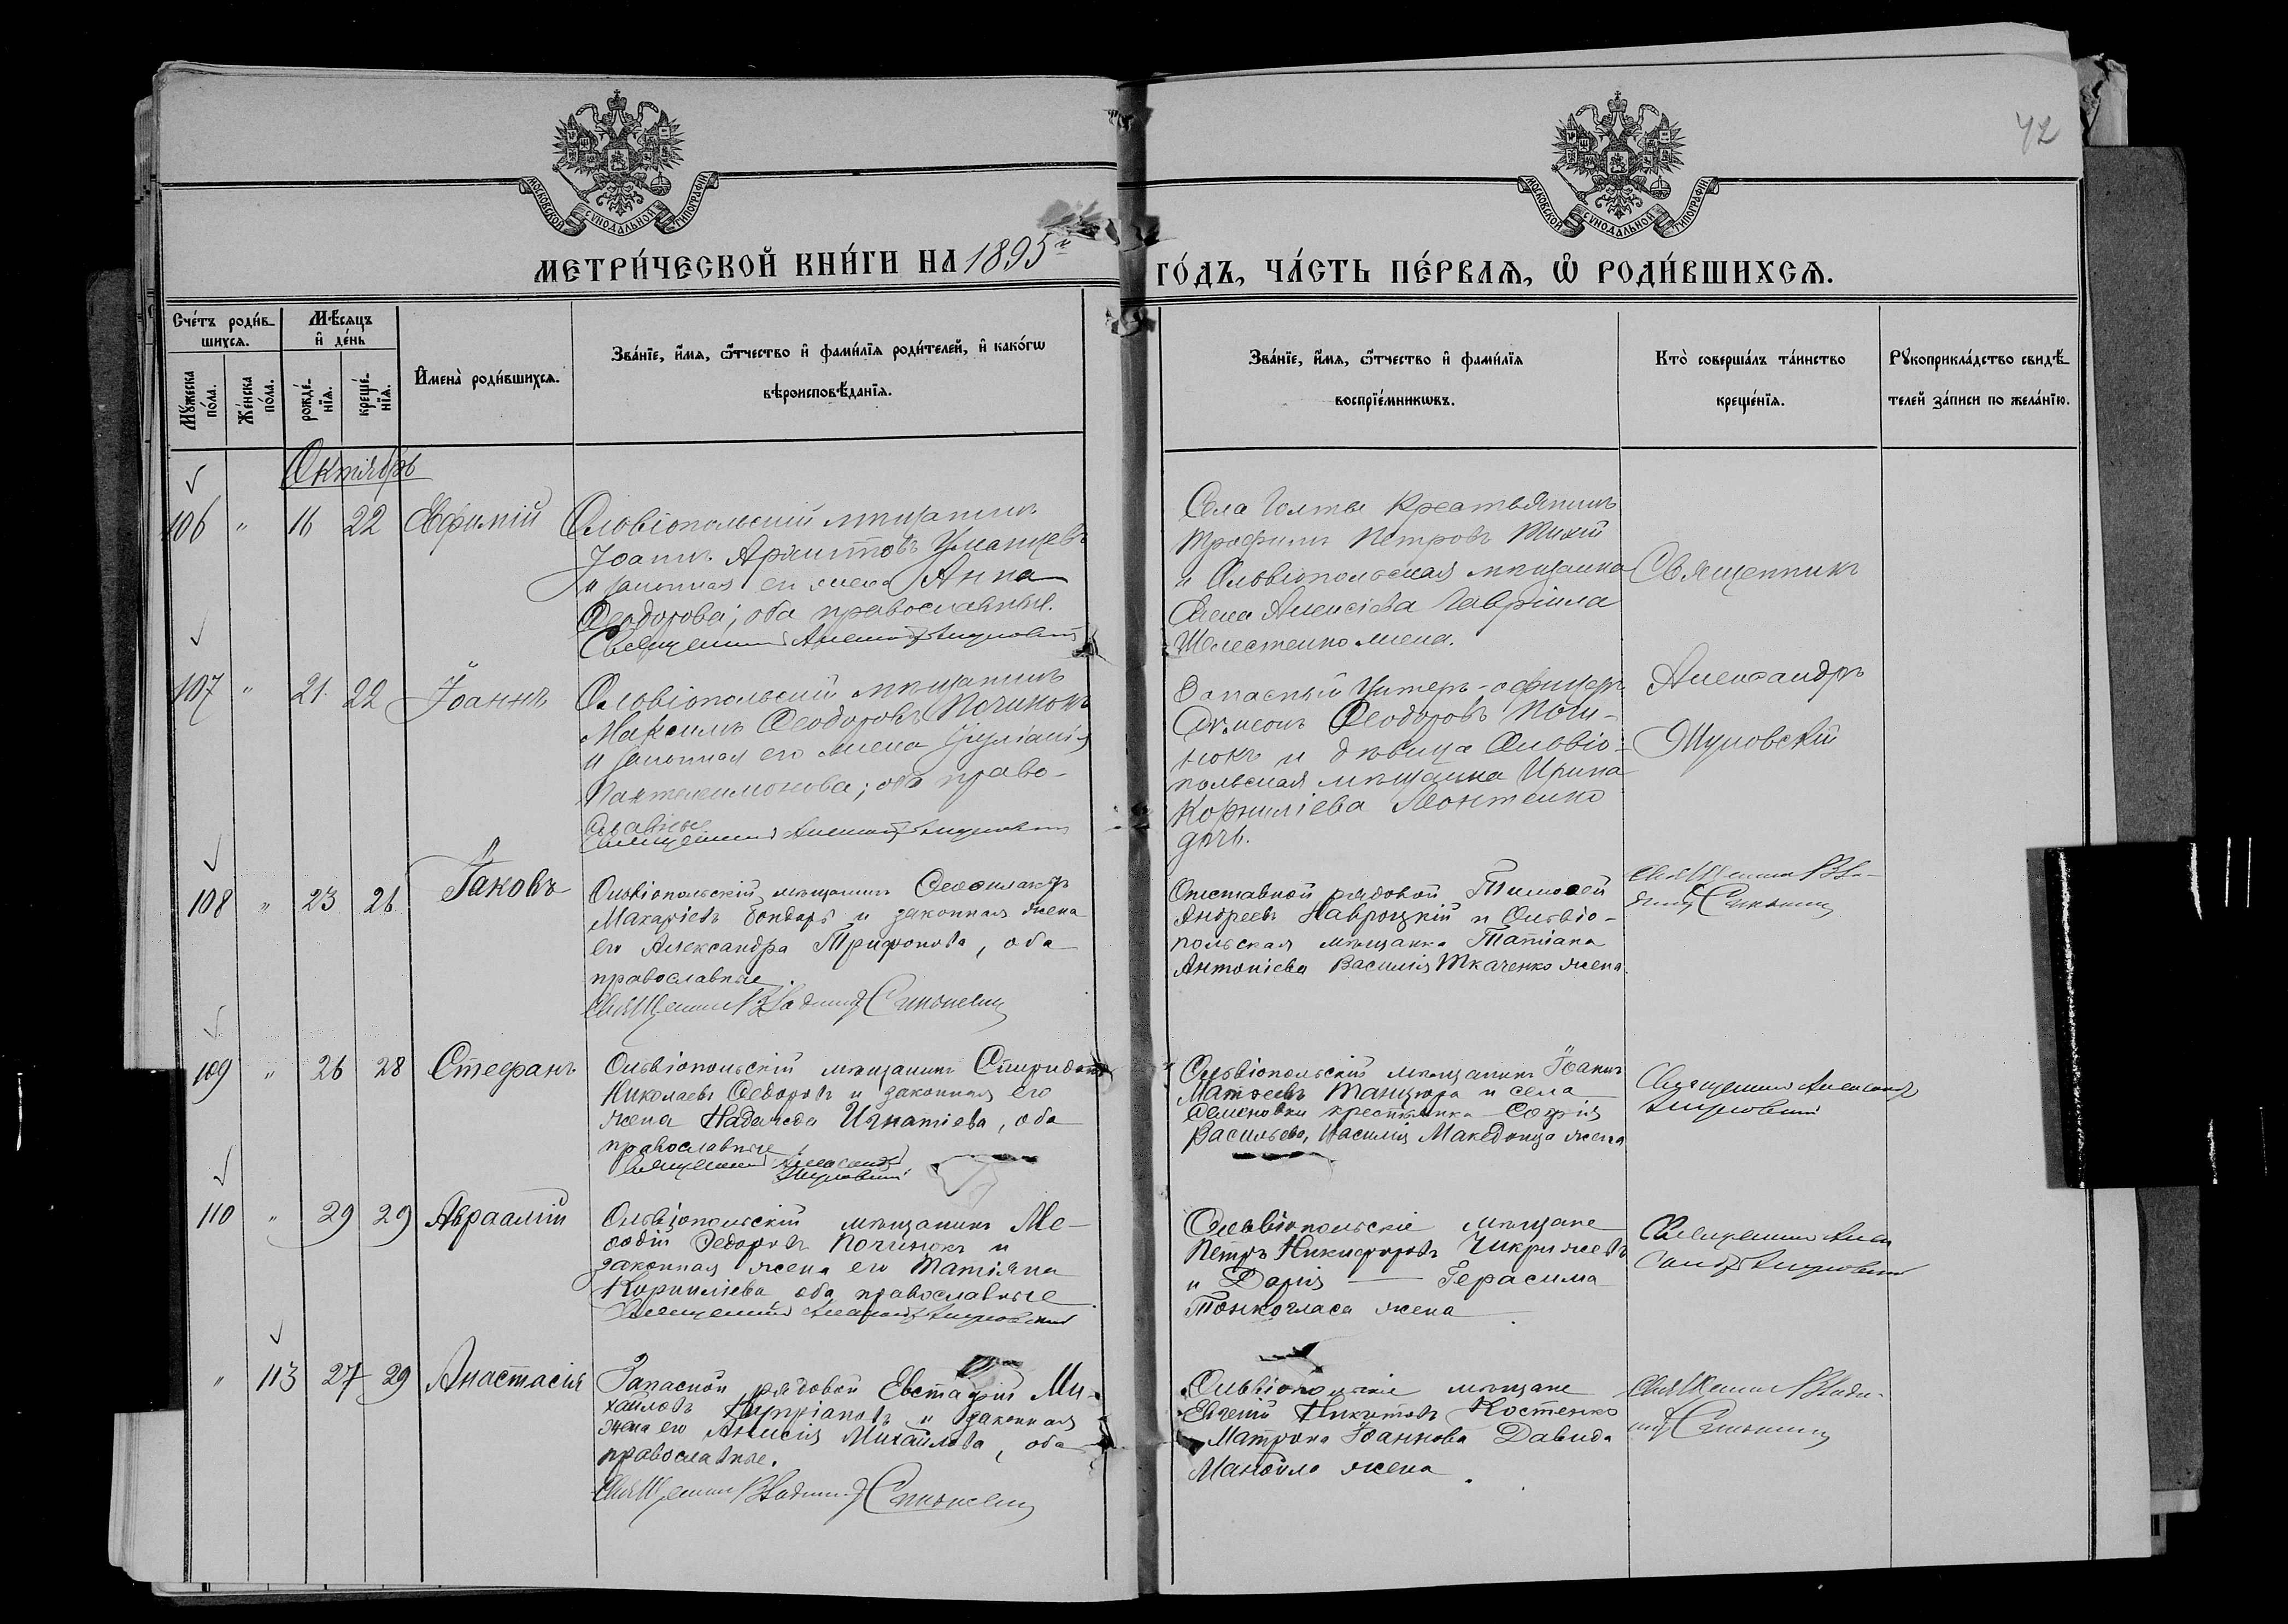 42
МОСКОВСКОЙ СѴНОДАЛЬНОЙ ТИПОГРАФІИ
МОСКОВСКОЙ СѴНОДАЛЬНОЙ ТИПОГРАФІИ
МЕТРИ́ЧЕСКОЙ КНИ́ГИ НА 1895й
ГО́ДЪ, ЧА́СТЬ ПЕ́РВАѦ, Ѡ҆ РОДИ́ВШИХСѦ.
Сче́тъ роди́в-
шихсѧ.
Мꙋ́жеска по́ла.
Же́нска по́ла.
Мѣ́сѧцъ
и҆ де́нь
рожде́-
нїѧ.
креще́-
нїѧ.
И҆мена̀ роди́вшихсѧ.
Зва́нїе, и҆́мѧ, ѻ҆́тчество и҆ фами́лїѧ роди́телей, и҆ како́гѡ
вѣроисповѣ́данїѧ.
Зва́нїе, и҆́мѧ, ѻ҆́тчество и҆ фами́лїѧ
воспрїе́мникѡвъ.
Кто̀ соверша́лъ та́инство
креще́нїѧ.
Рꙋкоприкла́дство свидѣ́-
телей за́писи по жела́нїю.
Октябрь
106 " 16 22 Евфимій
Ольвіопольскій мѣщанинъ
Іоаннъ
и законная его жена Анна
Ѳеодорова; оба православные.
Священникъ Александръ
Села Голты Крестьянинъ
Трофимъ Петровъ Тихій
и Ольвіопольская мѣщанка
Алексіева Гавріила
Шелестенко жена.
Священникъ
Александръ
107 " 21 22 Іоаннъ
Ольвіопольскій мѣщанинъ
Максимъ Ѳеодоровъ Починокъ
и законная его жена Іуліанія
Пантелеимонова; оба право-
славные
Священникъ Александръ
Запасный Унтеръ-офицеръ
Симеонъ Ѳеодоровъ Почи-
нокъ и дѣвица Ольвіо-
польская мѣщанка Ирина
Корниліева Леонтенко
дочь.
108 " 23 26 Іаковъ
Ольвіопольскій мѣщанинъ Ѳеофилактъ
Макаріевъ Бондарь и законная жена
его Александра Трифонова, оба
православные.
Священникъ Владиміръ
Отставной рядовой Тимоѳей
Андреевъ Навроцкій и Ольвіо-
польская мѣщанка Татіана
Антоніева Василія Ткаченко жена.
Священникъ Вла-
диміръ
109 " 26 28 Стефанъ
Ольвіопольскій мѣщанинъ Спиридонъ
Николаевъ Ѳедоровъ и законная его
жена Надежда Игнатіева, оба
православные
Священникъ Александръ
Ольвіопольскій мѣщанинъ Іоаннъ
Матѳеевъ Танцюра и села
Семеновки крестьянка Софія
Васильева, Василія Македонца жена
Священникъ Александръ
110 " 29 29 Авраамій
Ольвіопольскій мѣщанинъ Ме-
ѳодій Ѳедоровъ Починокъ и
законная жена его Татіяна
Корниліева, оба православные
Священникъ Александръ
Ольвіопольскіе мѣщане
Петръ Никифоровъ Чикрижевъ
и Дарія — Герасима
Тонкогласа жена
Священникъ Алек
сандръ
" 113 27 29 Анастасія
Запасной рядовой Евстафій Ми-
хаиловъ Кипріановъ и законная
жена его Анисія Михайлова, оба
православные.
Священникъ Владиміръ
Ольвіопольскіе мѣщане
Евгеній Никитовъ Костенко
Матрона Іоаннова Давида
Манойло жена
Священникъ Влади-
міръ